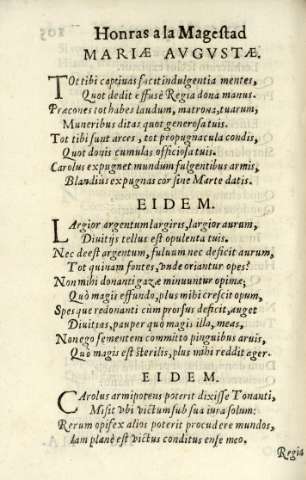 Honras a la Magestad
MARIÆ AVGVSTÆ.
TOt tibi captiuas facit indulgentia mentes,
Quot dedit effusè Regia dona manus.
Præcones tot habes laudum, matrona, tuarum,
Muneribus ditas quot generosa tuis.
Tot tibi sunt arces, tot propugnacula condis,
Quot donis cumulas officiosa tuis.
Carolus expugnet mundum fulgentibus armis,
Blandius expugnas cor sine Marte datis.
EIDEM.
LArgior argentum largiris, largior aurum,
Diuitijs tellus est opulenta tuis.
Nec deest argentum, fuluum nec deficit aurum,
Tot quinam fontes, vnde oriantur opes?
Non mihi donanti gazæ minuuntur opimæ;
Quò magis effundo, plus mihi crescit opum,
Spes que redonanti cùm prorsus deficit, auget
Diuitias, pauper quò magis illa, meas,
Non ego sementem committo pinguibus aruis,
Quò magis est sterilis, plus mihi reddit ager.
EIDEM.
CArolus armipotens poterit dixisse Tonanti,
Misit vbi victum sub sua iura solum:
Rerum opifex alios poterit procudere mundos,
Iam planè est victus conditus ense meo.
Regia